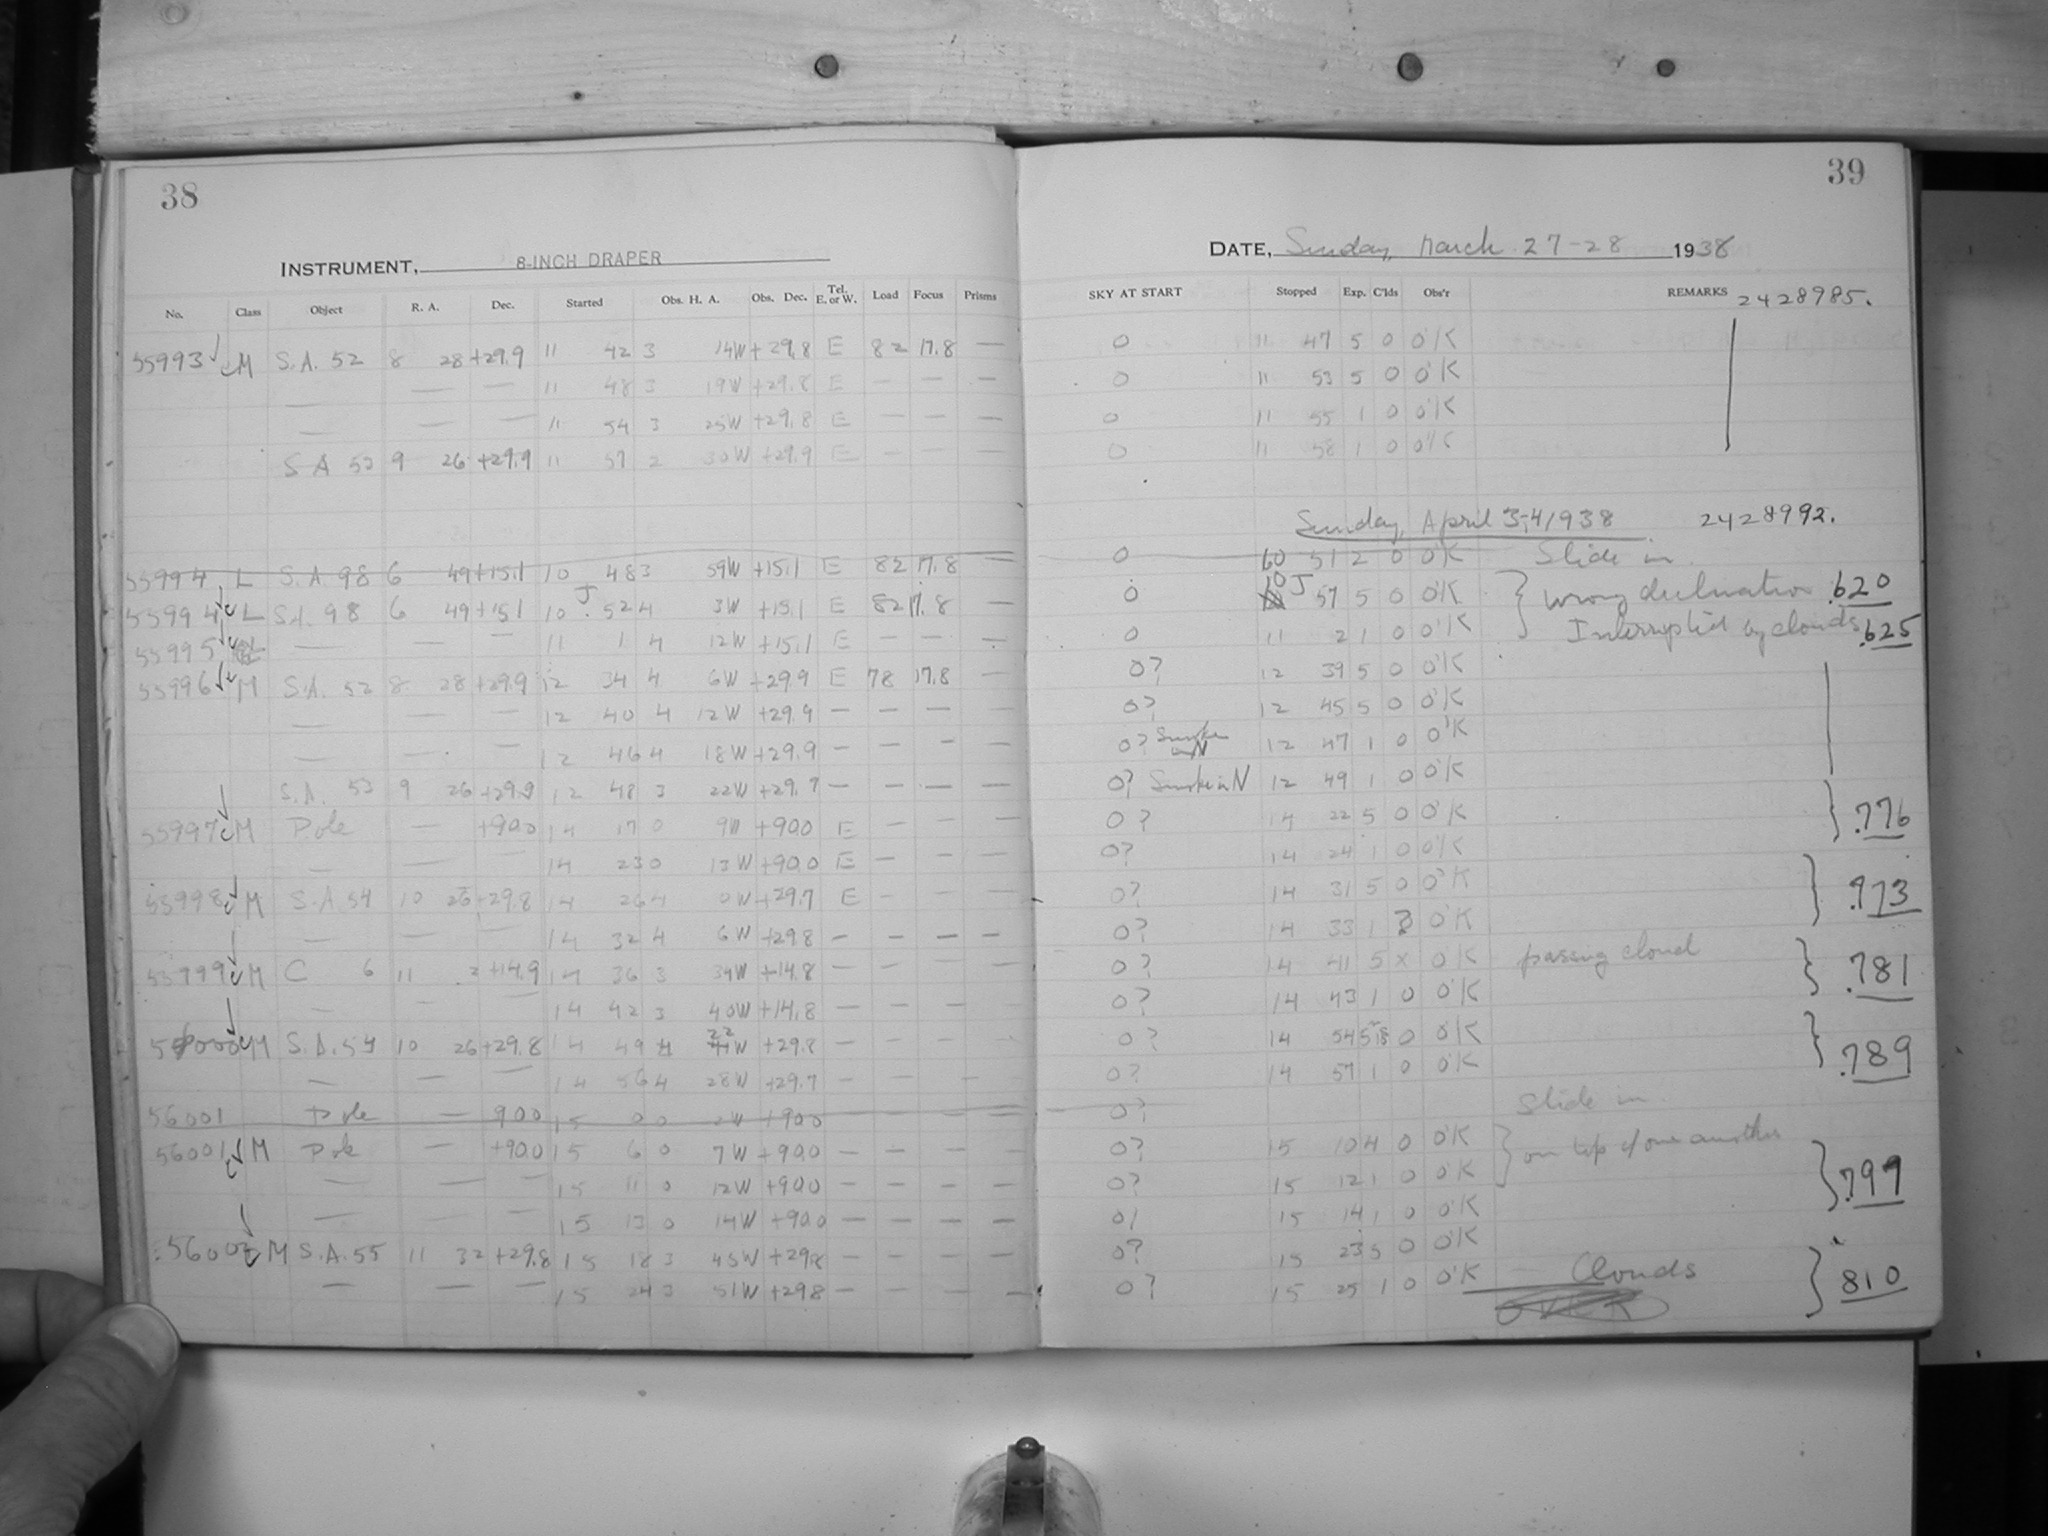 38
INSTRUMENT, 8-INCH DRAPER
No. Class Object R. A. Dec. Started Obs. H. A. Obs. Dec. Tel. E. or W. Load Focus Prisms
55993 M S.A. 52 8 28 +29.9 11 42 3 14W +29.8 E 82 17.8 —
— — — 11 48 3 19W +29.8 E — — —
— — — 11 54 3 25W +29.8 E — — —
S A 53 9 26 +29.9 11 57 2 30W +29.9 E — — —
55994 L S.A 98 6 49 +15.1 10 48 3 59W +15.1 E 82 17.8
55994 L S.A. 98 6 49 +15.1 10 52 4 3W +15.1 E 82 17.8 —
55995 — — — 11 1 4 12W +15.1 E — — —
55996 M S.A. 52 8 28 +29.9 12 34 4 6W +29.9 E 78 17.8 —
— — — 12 40 4 12W +29.9 — — — —
— — — 12 46 4 18W +29.9 — — — —
S.A. 53 9 26 +29.9 12 48 3 22W +29.9 — — — —
55997 M Pole — +90.0 14 17 0 9W +90.0 E — — —
— — — 14 23 0 13W +90.0 E — — —
55998 M S.A 54 10 26 +29.8 14 26 4 0W +29.7 E —
— — — 14 32 4 6W +29.8 — — — —
55999 M C 6 11 2 +14.9 14 36 3 34W +14.8 — — — —
— — — 14 42 3 40W +14.8 — — — —
56000 M S.A. 54 10 26 +29.8 14 49 4 22W +29.8 — — — —
— — — 14 56 4 28W +29.7 — — — —
56001 Pole — 90.0 15 0 0 +90.0
56001 M Pole — +90.0 15 6 0 7W +90.0 — — — —
— — — 15 11 0 12W +90.0 — — — —
— — — 15 13 0 14W +90.0 — — — —
56002 M S.A. 55 11 32 +29.8 15 18 3 45W +29.8 — — — —
— — — 15 24 3 51W +29.8 — — — —
39
DATE, Sunday, March 27-28 1938
SKY AT START Stopped Exp. C'lds Obs'r REMARKS 2428985.
0 11 47 5 0 O'K
0 11 53 5 0 O'K
0 11 55 1 0 O'K
0 11 58 1 0 O'K
Sunday, April 3-4 1938 2428992.
0 10 51 2 0 O'K Slide in
0 10 57 5 0 O'K wrong declination .620
0 11 2 1 0 O'K Interrupted by clouds .625
0? 12 39 5 0 O'K
0? 12 45 5 0 O'K
0? Smoke in N 12 47 1 0 O'K
0? Smoke in N 12 49 1 0 O'K
0? 14 22 5 0 O'K .776
0? 14 24 1 0 O'K
0? 14 31 5 0 O'K .773
0? 14 33 1 ? O'K
0? 14 41 5 x O'K passing cloud .781
0? 14 43 1 0 O'K
0? 14 54 0 O'K .789
0? 14 57 1 0 O'K
0? Slide in
0? 15 10 4 0 O'K on top of one another
0? 15 12 1 0 O'K .799
15 14 1 0 O'K
0? 15 23 5 0 O'K
0? 15 25 1 0 O'K Clouds 810